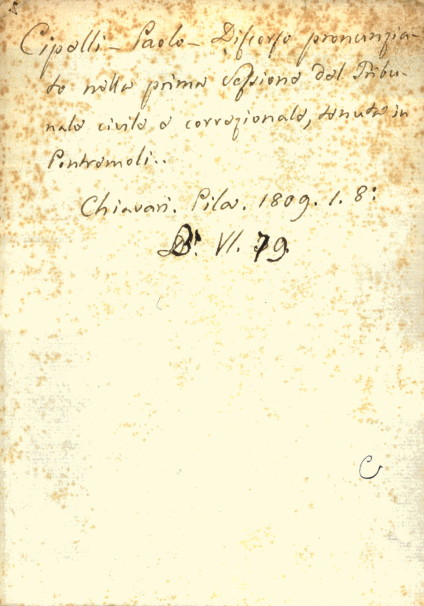 Cipolli - Paolo - Discorso pronunzia-
to nella prima sessione del Tribu-
nale civile e correzionale, tenuta in
Pontremoli..
Chiavari. Pila. 1809. 1. 8:
B. VI. 79.
C